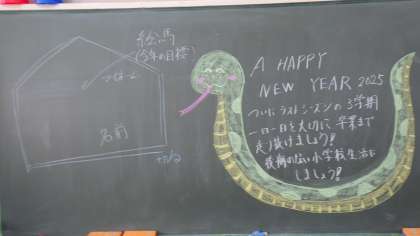 絵馬
(今年の目標)
名前
A HAPPY
NEW YEAR 2025
ついにラストシーズンの3学期
一日一日を大切に 卒業まで
走り抜けましょう!
後悔のない小学校生活に
しましょう!